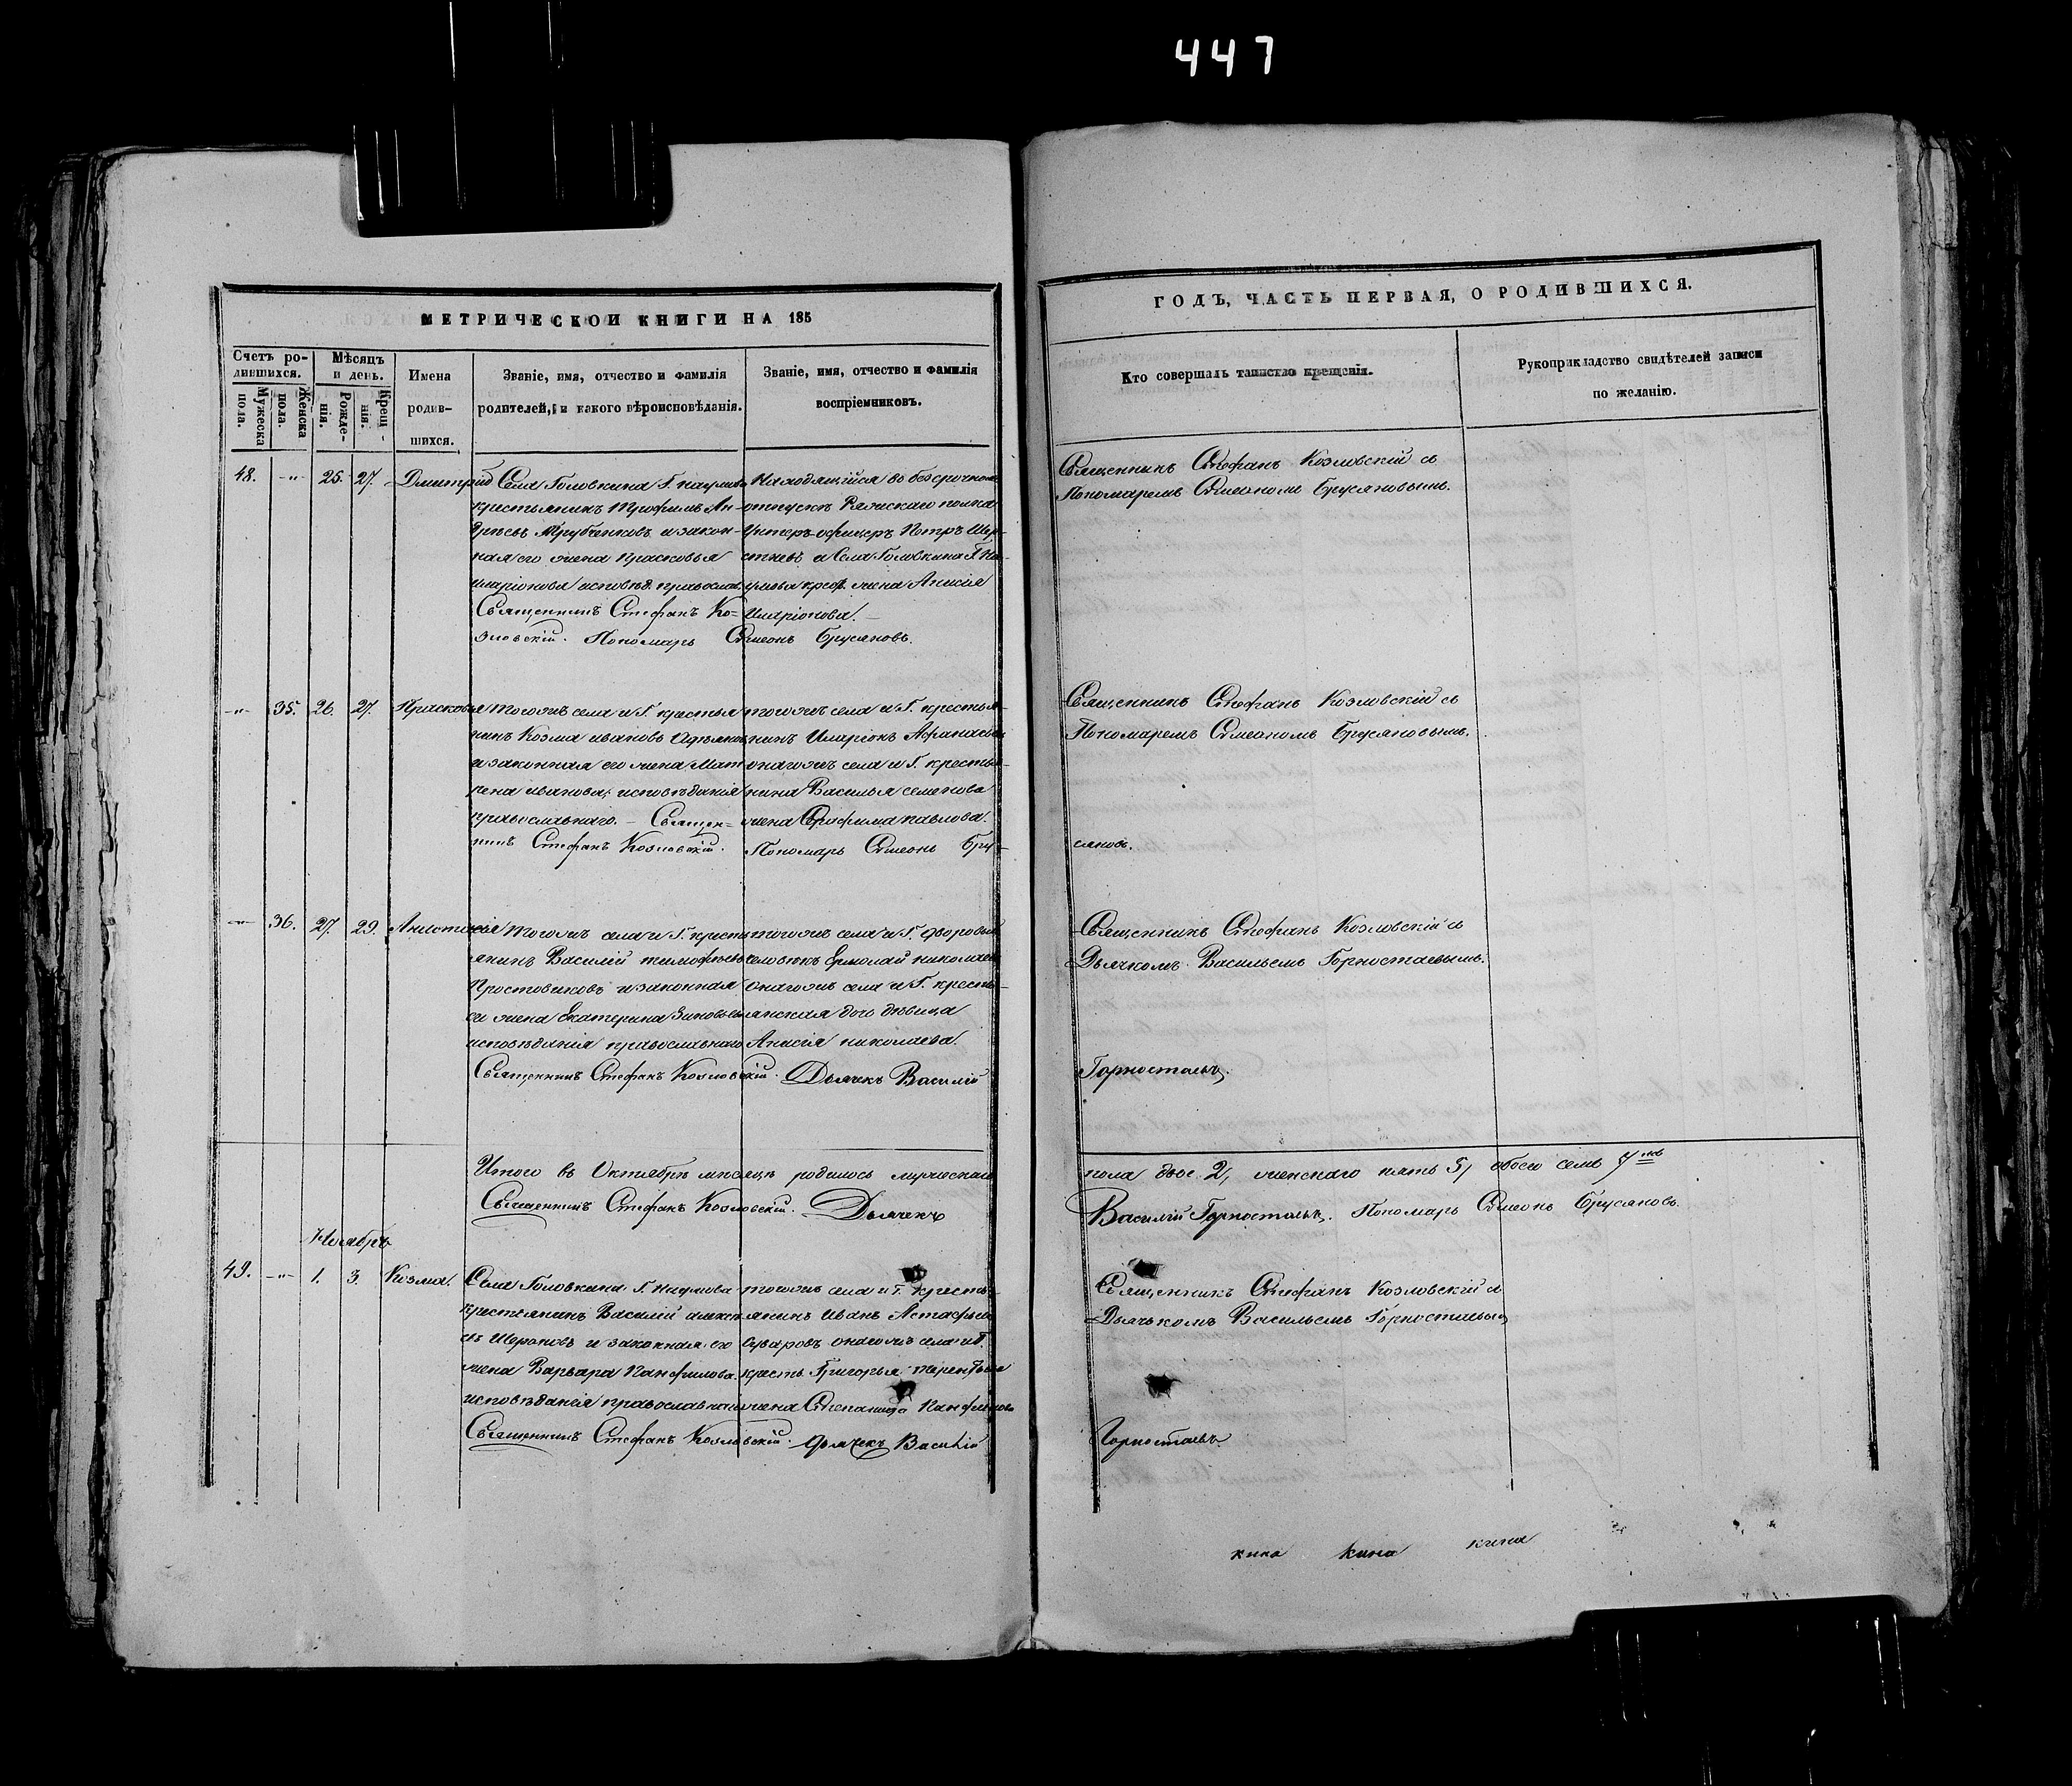 447
МЕТРИЧЕСКОЙ КНИГИ НА 185
ГОДЪ, ЧАСТЬ ПЕРВАЯ, О РОДИВШИХСЯ.
Счетъ ро-
дившихся.
Мужеска пола.
Женска пола.
Мѣсяцъ
и день.
Рожде-
нія.
Крещ-
нія.
Имена
родив-
шихся.
Званіе, имя, отчество и фамилія
родителей, и какого вѣроисповѣданія.
Званіе, имя, отчество и фамилія
воспріемниковъ.
Кто совершалъ таинство крещенія.
Рукоприкладство свидѣтелей записи
по желанію.
48. -"- 25. 27. Дмитрій
Села Головкина Г. Наумова
крестьянинъ Трофимъ Ан-
дрѣевъ Трубченковъ и закон-
ная его жена Прасковья
Иларіонова исповѣд. православ.
Священникъ Стефанъ Ко=
зловскій. Пономарь Сѵмеонъ Брусяновъ.
Находящійся во безсрочномъ
отпускѣ Ряжскаго полка
Унтеръ-офицеръ Петръ
и Села Головкина Г. На-
умова крест. жена Анисія
Иларіонова.
Священникъ Стефанъ Козловскій съ
Пономаремъ Сѵмеономъ Брусяновымъ.
-"- 35. 26. 27. Прасковья
тогожъ села и Г. крестья
нинъ Козма Ивановъ
и законная его жена Мат
рена Иванова; исповѣданія
православнаго. – Священ=
никъ Стефанъ Козловскій.
тогожъ села и Г. крестья-
нинъ Иларіонъ Афанасьевъ
онагожъ села и Г. крестья-
нина Василья Семенова
жена Ефимья Павлова.
Пономарь Сѵмеонъ Бру-
Священникъ Стефанъ Козловскій съ
Пономаремъ Сѵмеономъ Брусяновымъ.
сяновъ.
-"- 36. 27. 29. Анастасія
тогожъ села и Г. кресть
янинъ Василій Тимофѣевъ
Простовиковъ и законная
его жена Екатерина Зиновьева
исповѣданія православнаго
Священникъ Стефанъ Козловскій. Дьячекъ Василій
тогожъ села и Г. дворовый
человѣкъ Ермолай Николаевъ
онагожъ села и Г. кресть-
янская дочь дѣвица
Анисія Николаева.
Священникъ Стефанъ Козловскій съ
Дьячкомъ Васильемъ Горностаевымъ.
Горностаевъ.
Итого въ Октябрѣ мѣсяцѣ родилось мужескаго
пола двое 2, женскаго пять 5, обоего семь 7
Священникъ Стефанъ Козловскій. Дьячекъ
Василій Горностаевъ. Пономарь Сѵмеонъ Брусяновъ.
Ноябрь
49. -"- 1. 3. Козма.
Села Головкина Г. Наумова
крестьянинъ Василій Алексѣ
евъ и законная его
жена Варвара Панфилова.
исповѣданія православнаго
Священникъ Стефанъ Козловскій. Дьячекъ Василій
тогожъ села и Г. кресть-
янинъ Иванъ Астафьевъ
Суваровъ онагожъ села и Г.
крест. Григорья Терентьева
жена Степанида Панфилова
Священникъ Стефанъ Козловскій съ
Дьячькомъ Васильемъ Горностаевымъ
Горностаевъ.
кина кина кина